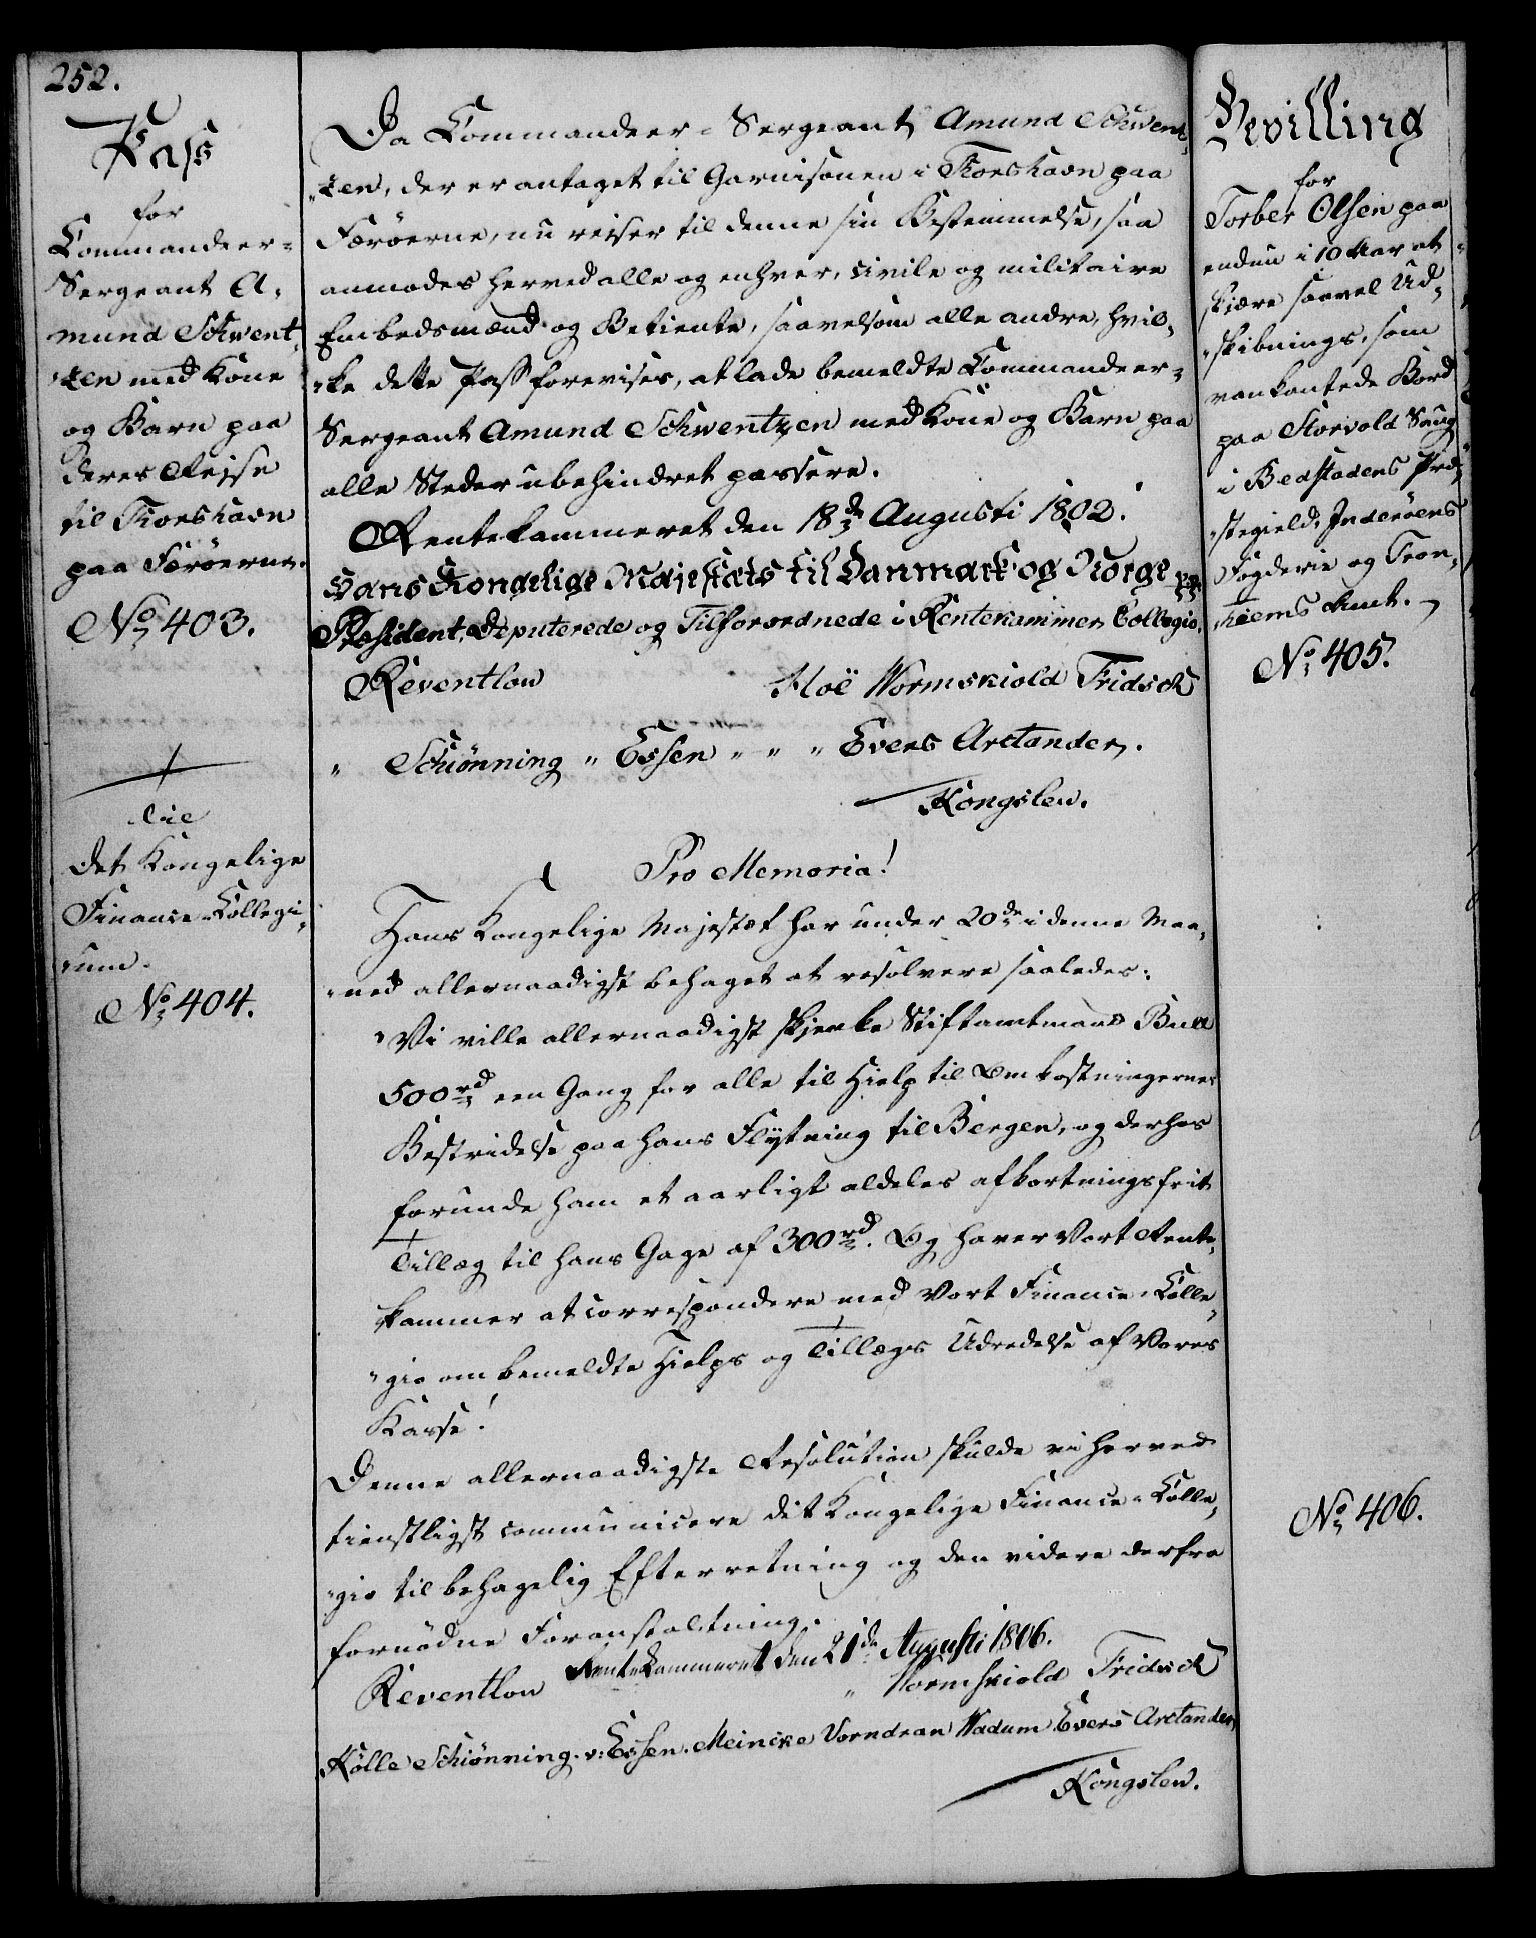 252.
Pass
for
Commandeer-
Sergeant A-
mund Schwent-
"zen med Kone
og Barn paa
deres Rejse
til Thorshavn
paa Færöerne.
No 403.
Da Commandeer-Sergeant Amund Schwent-
"zen, der er antaget til Garnisonen i Thorshavn paa
Færöerne, nu reiser til denne sin Bestemmelse, saa
anmodes herved alle og enhver, civile og militaire
Embedsmænd og Betiente, saavelsom alle andre, hvil-
"ke dette Pass forevises, at lade bemeldte Commandeer-
Sergeant Amund Schwentzen med Kone og Barn paa
alle Steder ubehindret passere.
Rentekammeret den 18de Augusti 1802.
Hans Kongelige Majestæts til Danmark og Norge pp.
Præsident, Deputerede og Tilforordnede i Rentekammer Collegio.
Reventlow Hoë Wormskiold Fridsch
" Schiønning " Essen " " " Evers Arctander.
Kongslew.
Til
Det Kongelige
Finance-Collegi-
"um.
No 404.
Pro Memoria!
Hans Kongelige Majestæt har under 20de i denne Maa-
"ned allernaadigst behaget at resolvere saaledes:
"Vi ville allernaadigst skjenke Stiftamtmand Bull
500rd een Gang for alle til Hielp til Omkostningernes
Bestridelse paa hans Flÿtning til Bergen, og derhos
forunde ham et aarligt aldeles afkortningsfrit
Tillæg til hans Gage af 300rd. Og haver Vort Rente-
kammer at correspondere med Vort Finance-Colle-
"gio om bemeldte Hielps og Tillægs Udredelse af Vores
Kasse!
Denne allernaadigste Resolution skulde vi herved
tienstligst communicere det Kongelige Finance-Colle-
"gio til behagelig Efterretning og den videre derfra
fornødne Foranstaltning.
Rentekammeret den 21de Augusti 1806.
Reventlow " Wormskiold Fridsch
Kølle Schiønning. v: Essen. Meincke Vorndran Wadum Evers Arctander
Kongslew.
Bevilling
for
Torber Olsen paa
endnu i 10 Aar at
skiære saavel Ud-
"skibnings, som
vankantede Bord
paa Storvold Saug
i Bedstadens Præ-
"stegield, Inderöens
Fogderie og Tron-
"hiems Amt.
No 405.
No 406.